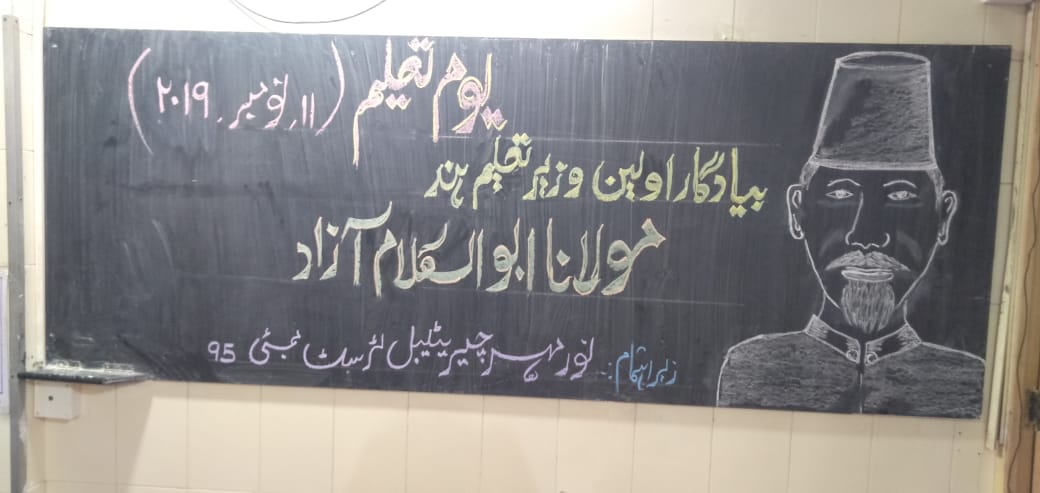 یوم تعلیم (۱۱؍ نومبر ۲۰۱۹؍)
بیادگار اولین وزیر تعلیم ہند
مولانا ابوالکلام آزاد
زیر اہتمام: نور مہر چیریٹیبل ٹرسٹ ممبئی 95